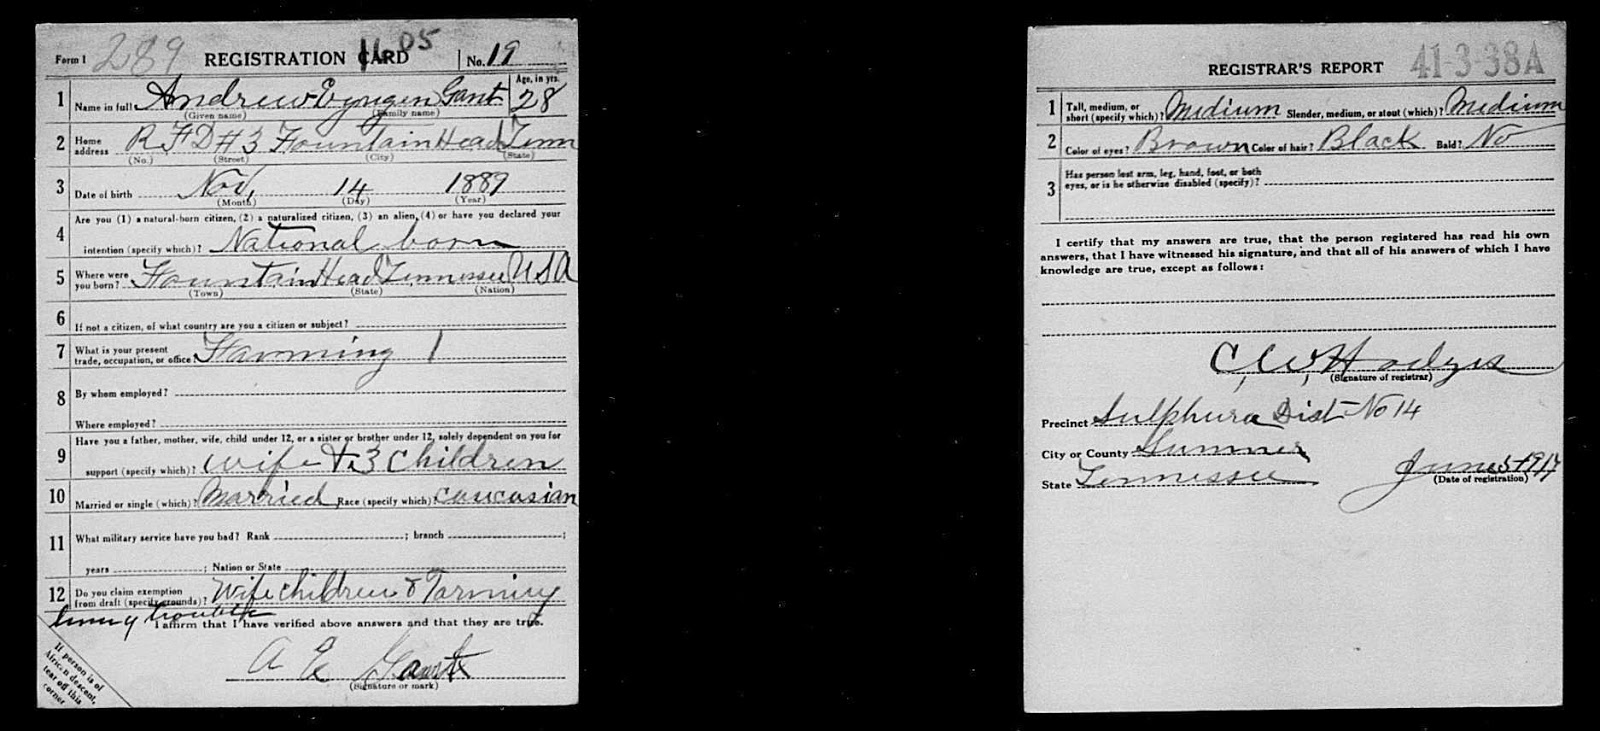 Form 1 289 REGISTRATION CARD 1605 No. 19
1 Name in full Andrew Eyngen Gant Age, in yrs. 28
(Given name) (Family name)
2 Home address R F D # 3 Fountain Head Tenn
(No.) (Street) (City) (State)
3 Date of birth Nov, 14 1889
(Month) (Day) (Year)
4 Are you (1) a natural-born citizen, (2) a naturalized citizen, (3) an alien, (4) or have you declared your
intention (specify which)? National born
5 Where were you born? Fountain Head Tennessee U S A
(Town) (State) (Nation)
6 If not a citizen, of what country are you a citizen or subject?
7 What is your present trade, occupation, or office? Farming 1
8 By whom employed?
Where employed?
9 Have you a father, mother, wife, child under 12, or a sister or brother under 12, solely dependent on you for
support (specify which)? Wife & 3 Children
10 Married or single (which)? Married Race (specify which)? Caucasian
11 What military service have you had? Rank ; branch ;
years ; Nation or State
12 Do you claim exemption from draft (specify grounds)? Wife children & Farming
trouble
I affirm that I have verified above answers and that they are true.
A E Gant
(Signature or mark)
If person is of
African descent,
tear off this
corner
REGISTRAR'S REPORT 41-3-38A
1 Tall, medium, or short (specify which)? Medium Slender, medium, or stout (which)? Medium
2 Color of eyes? Brown Color of hair? Black Bald? No
3 Has person lost arm, leg, hand, foot, or both
eyes, or is he otherwise disabled (specify)?
I certify that my answers are true, that the person registered has read his own
answers, that I have witnessed his signature, and that all of his answers of which I have
knowledge are true, except as follows:
C, W, Hodges
(Signature of registrar)
Precinct Sulphura Dist No 14
City or County Sumner
State Tennessee June 5-1917
(Date of registration)